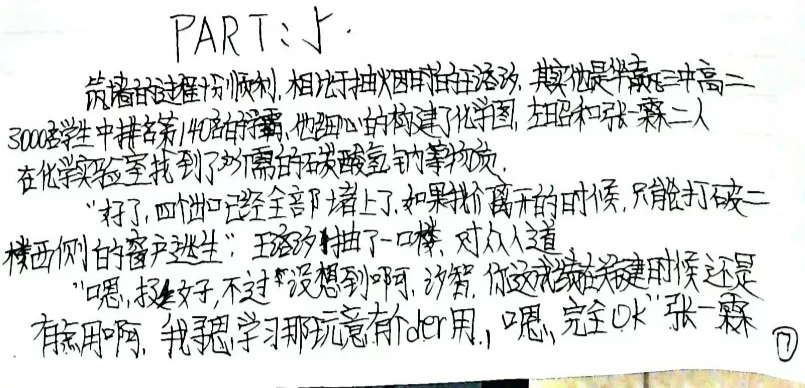 PART: 5.
筑墙的过程十分顺利,相比于抽烟时的王洛汐,其实他是华
二中高二
3000名学生中排名第140名的学霸,他细心的构建了化学图,左昭和张一霖二人
在化学实验室找到了所需的碳酸氢钠等物质.
"好了,四个出口已经全部堵上了,如果我们离开的时候,只能打破二
楼西侧的窗户逃生",王洛汐抽了一口
,对众人道
"嗯,
文子,不过"没想到啊,汐智,你这成绩在关建时候还是
有点用啊,我寻思学习那玩意有个der用,,嗯,完全OK"张一霖
⑰